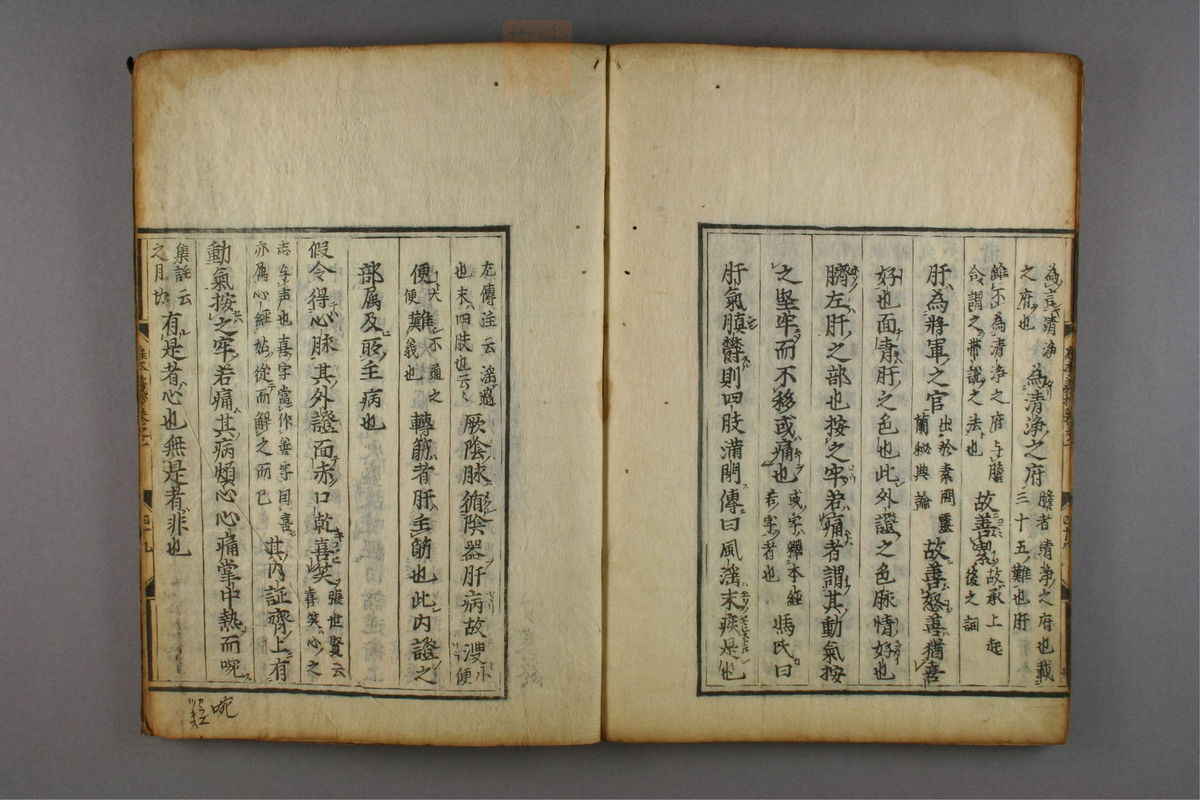 為言清浄
之府也
為清浄之府
膽者清浄之府也載
三十五難也肝
雖不為清浄之府与膽
合謂之帯説之法也
故善潔
故承上起
後之詞
肝為將軍之官
出於素問靈
蘭秘典論
故善怒善猶喜
好也面青肝之色也此外證之色脉情好也
臍左肝之部也按之牢若痛者謂其動氣按
之堅牢而不移或痛也
或字釋本経
若字者也
馮氏曰
肝氣膹鬱則四肢満閉傳曰風淫末疾是也
左傳注云淫
也末四肢也云々
厥陰脉循陰器肝病故溲
小便
便
大便
難
不通之
義也
轉筋者肝主筋也此内證之
部属及所主病也
假令得心脉其外證面赤口乾喜笑
張世賢云
喜笑心之
志与声也喜字當作善字因喜
亦属心経姑従而解之而已
其内証齊上有
動氣按之牢若痛其病煩心心痛掌中熱而啘
集註云
之月切
有是者心也無是者非也
啘